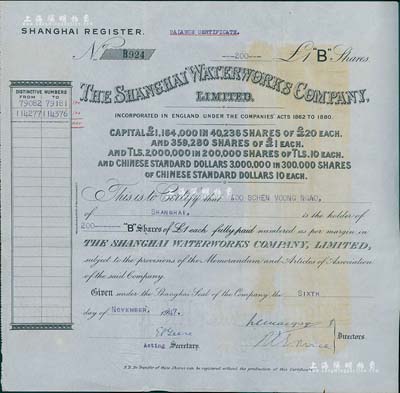 上海陽明拍賣
SHANGHAI REGISTER.
BALANCE CERTIFICATE.
No B924
200 £1 "B" Shares.
DISTINCTIVE NUMBERS
FROM TO
79082 79181
114277 114376
THE SHANGHAI WATERWORKS COMPANY,
LIMITED,
INCORPORATED IN ENGLAND UNDER THE COMPANIES' ACTS 1862 TO 1880.
CAPITAL £1,164,000 IN 40,236 SHARES OF £20 EACH.
AND 359,280 SHARES OF £1 EACH.
AND TLS. 2,000,000 IN 200,000 SHARES OF TLS. 10 EACH.
AND CHINESE STANDARD DOLLARS 3,000,000 IN 300,000 SHARES
OF CHINESE STANDARD DOLLARS 10 EACH.
This is to Certify that KOO SCHEN VOONG NGAO,
of SHANGHAI, is the holder of
200 "B" Shares of £1 each fully paid numbered as per margin in
THE SHANGHAI WATERWORKS COMPANY, LIMITED,
subject to the provisions of the Memorandum and Articles of Association
of the said Company.
Given under the Shanghai Seal of the Company the SIXTH
day of NOVEMBER,
Directors
Acting Secretary.
N.B. No Transfer of these Shares can be registered without the production of this Certificate.
上海陽明拍賣